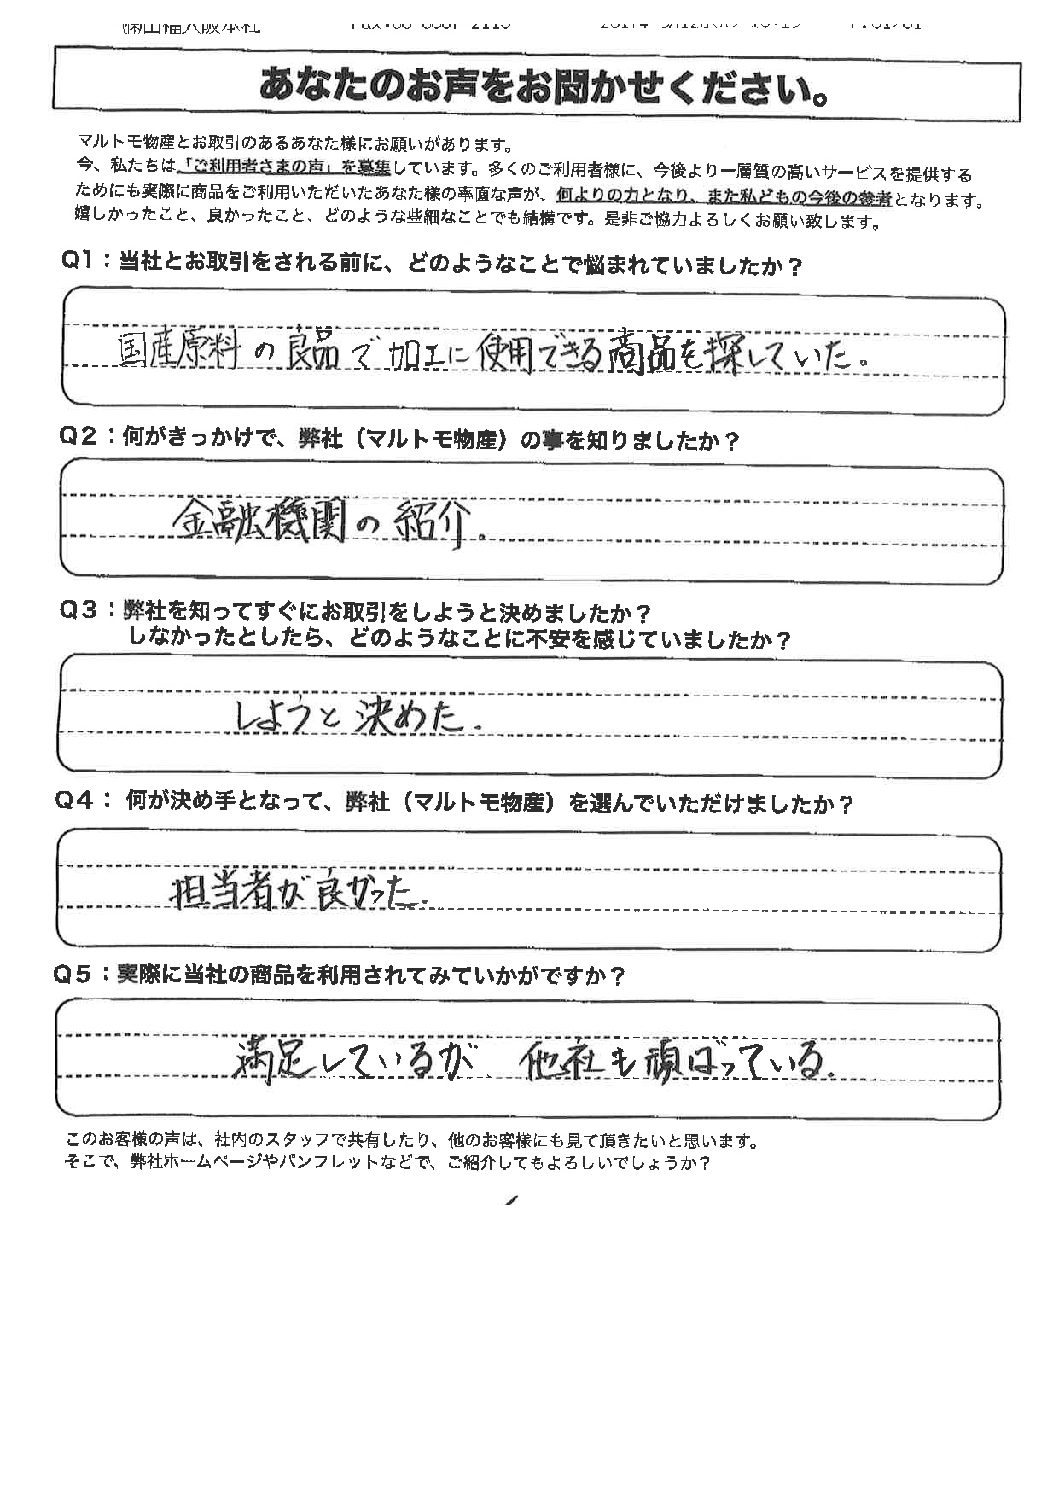 あなたのお声をお聞かせください。
マルトモ物産とお取引のあるあなた様にお願いがあります。
今、私たちは、「ご利用者さまの声」を募集しています。多くのご利用者様に、今後より一層質の高いサービスを提供する
ためにも実際に商品をご利用いただいたあなた様の率直な声が、何よりの力となり、また私どもの今後の参考となります。
嬉しかったこと、良かったこと、どのような些細なことでも結構です。是非ご協力よろしくお願い致します。
Q1：当社とお取引をされる前に、どのようなことで悩まれていましたか？
国産原料の良品で加工に使用できる商品を探していた。
Q2：何がきっかけで、弊社（マルトモ物産）の事を知りましたか？
金融機関の紹介.
Q3：弊社を知ってすぐにお取引をしようと決めましたか？
しなかったとしたら、どのようなことに不安を感じていましたか？
しようと決めた.
Q4： 何が決め手となって、弊社（マルトモ物産）を選んでいただけましたか？
担当者が良かった.
Q5：実際に当社の商品を利用されてみていかがですか？
満足しているが、他社も頑ばっている.
このお客様の声は、社内のスタッフで共有したり、他のお客様にも見て頂きたいと思います。
そこで、弊社ホームページやパンフレットなどで、ご紹介してもよろしいでしょうか？